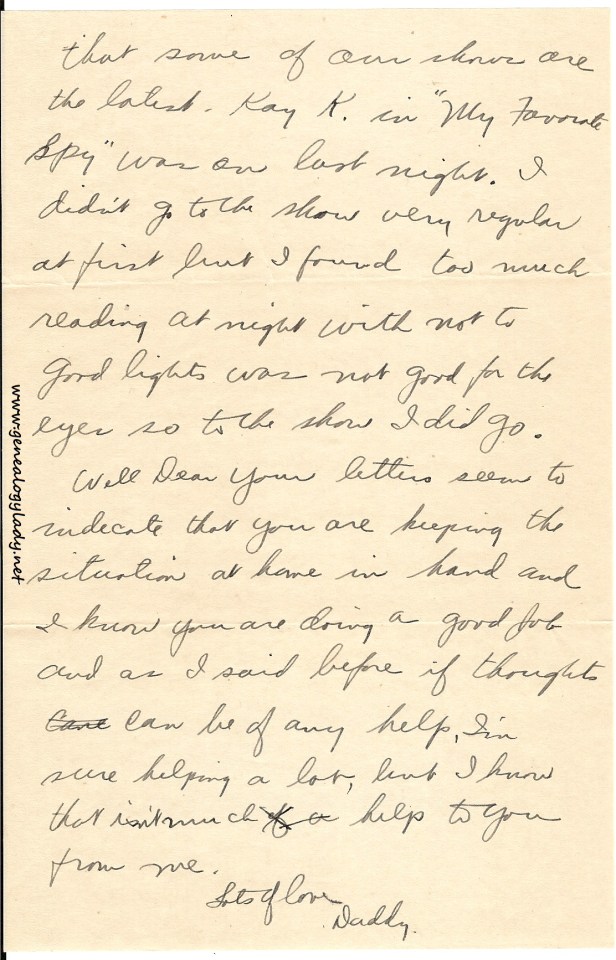 that some of our shows are
the latest. Kay K. in "My Favorate
Spy" was on last night. I
didn't go to the show very regular
at first but I found too much
reading at night with not to
good lights was not good for the
eyes so to the show I did go.
Well Dear your letters seem to
indecate that you are keeping the
situation at home in hand and
I know you are doing a good job
and as I said before if thoughts
can be of any help, I'm
sure helping a lot, but I know
that isn't much help to you
from me.
Lots of love
Daddy.
www.genealogylady.net